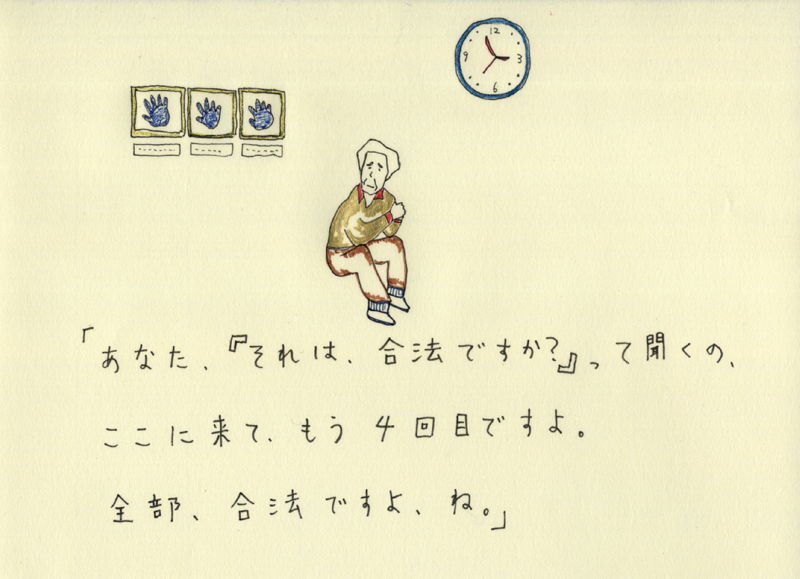 12
9
3
6
「あなた、『それは、合法ですか?』って聞くの、
ここに来て、もう 4回目ですよ。
全部、合法ですよ、ね。」